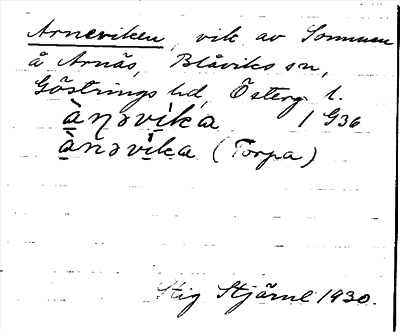 Arneviken, vik av Sommen
å Arnäs, Blåviks sn,
Göstrings hd, Österg. l.
ȧ̱ꞃəvi̱ka 1 G36
ȧ̱nəvi̱ka (Torpa)
Stig Stjärne 1930.